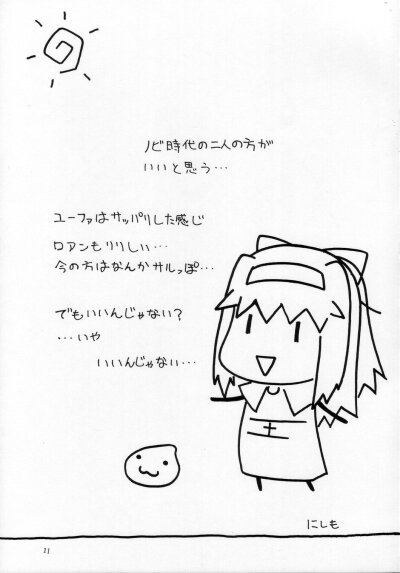 ノビ時代の二人の方が
いいと思う…
ユーファはサッパリした感じ
ロアンもりりしい…
今の方はなんかサルっぽ…
でもいいんじゃない?
…いや
いいんじゃない…
にしも
11